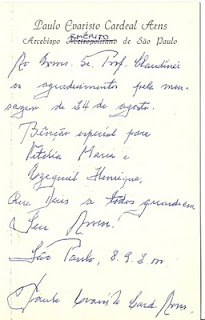 Paulo Evaristo Cardeal Arns
EMÉRITO
Arcebispo Metropolitano de São Paulo
Ao Bom. Sr. Prof. Claudinei
os agradecimentos pela men-
sagem de 24 de agosto.
Bênção especial para
Vitória Maria e
Ezequiel Henrique,
Que Deus a todos guarde em
Seu Amor!
São Paulo, 8.9.
Paulo Evaristo Card. Arns.